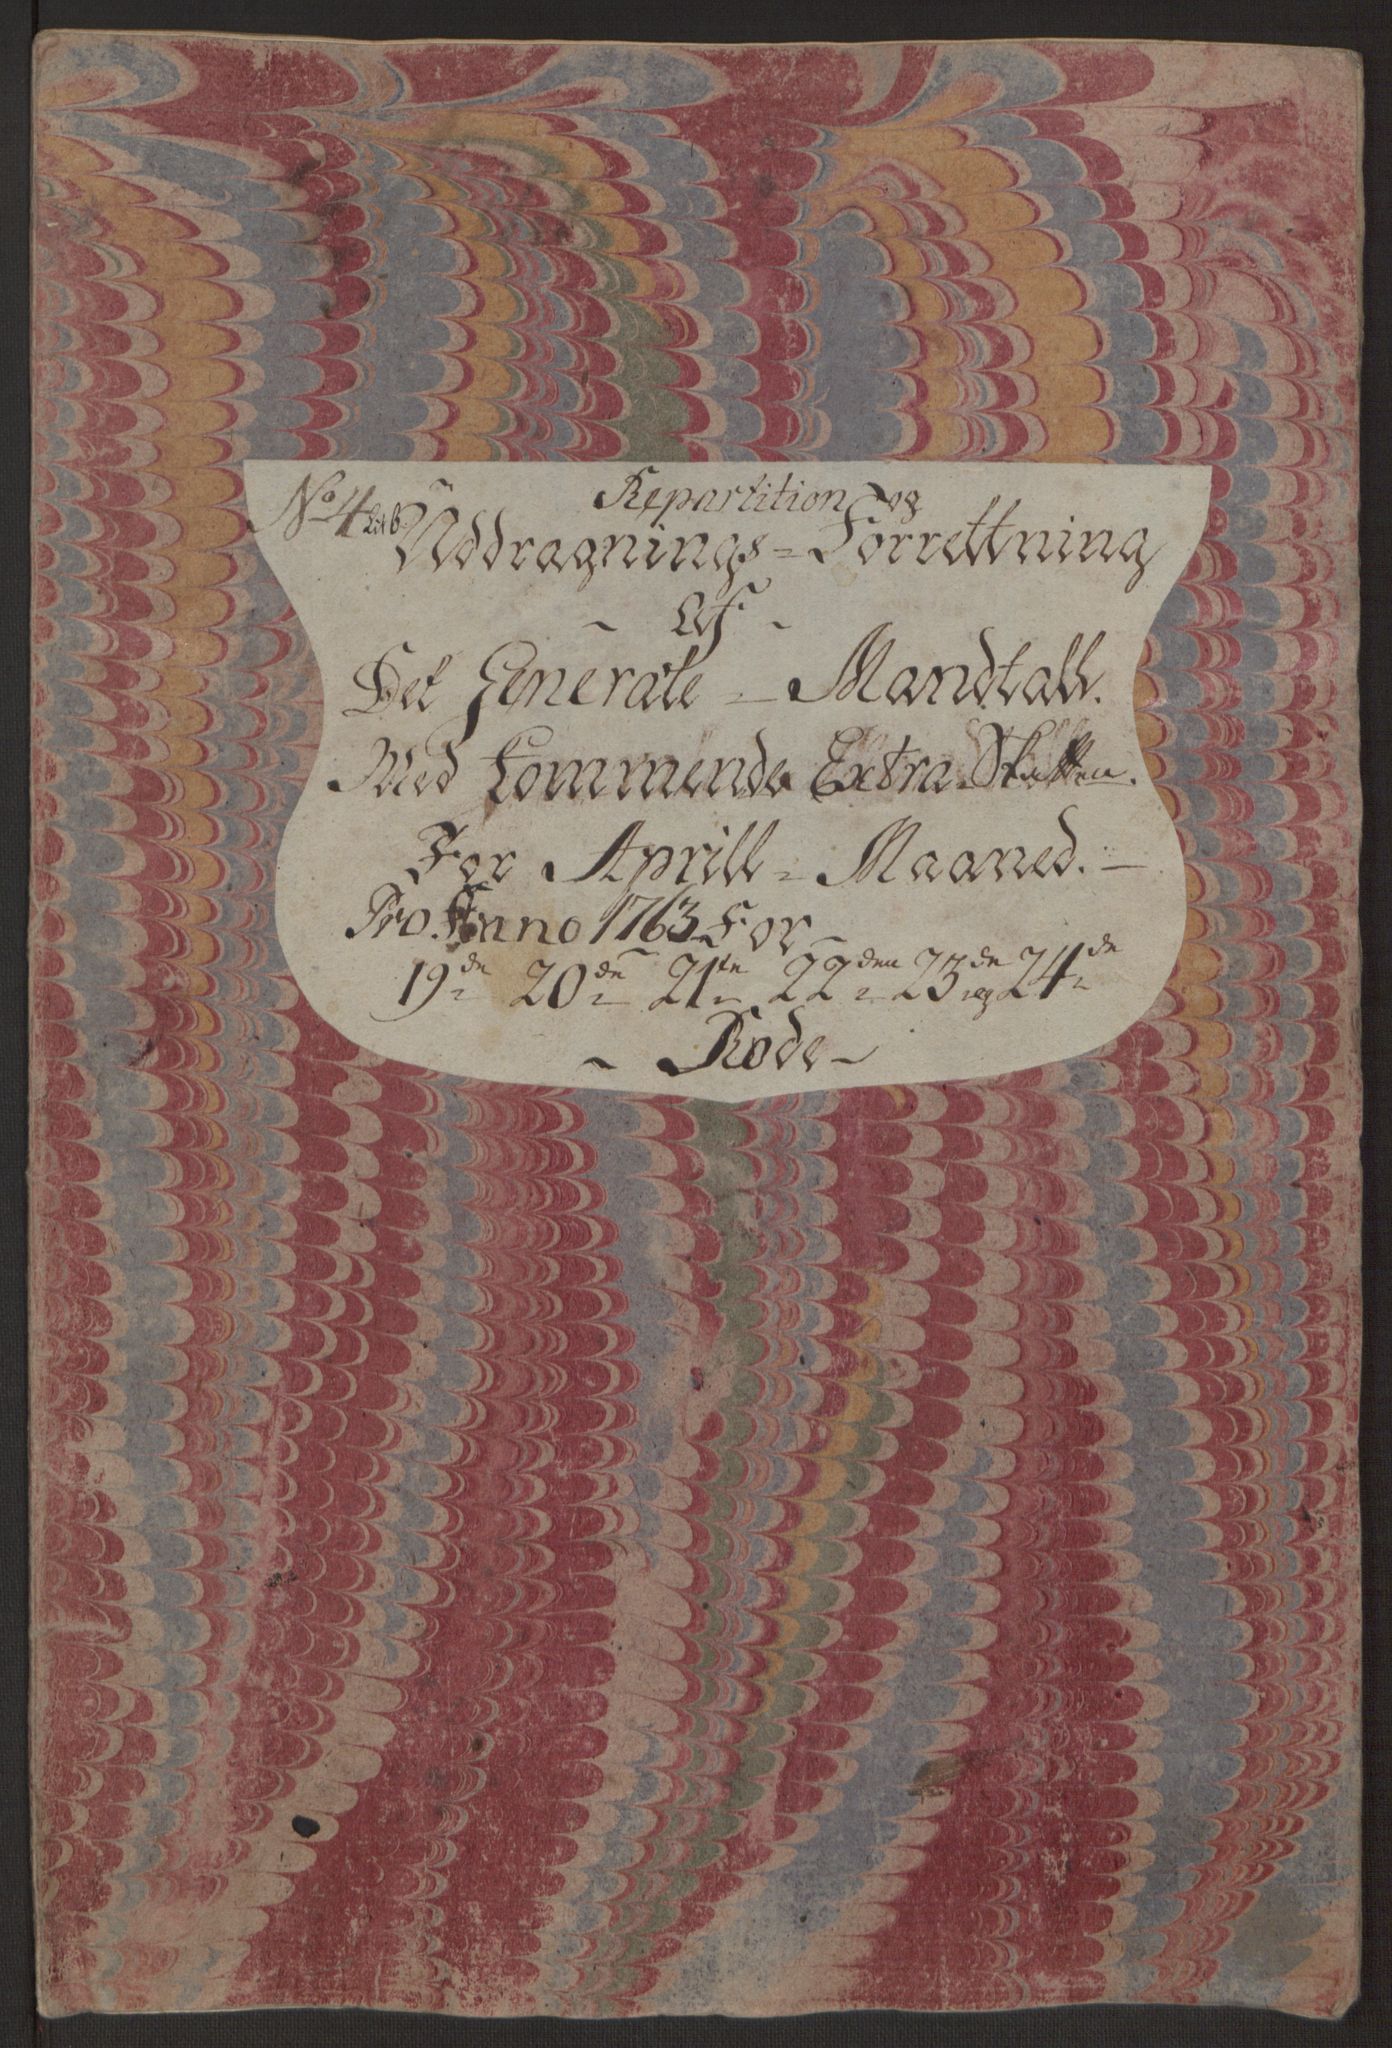 Repartition og
No 4 Litb. Uddragnings = Forrettning
~ Af ~
Det Generale = Mandtall.
Med kommende Extra Skatten.
For Aprill = Maaned. —
Pro Anno 1763 For
19de 20de 21te 22den 23de og 24de
~ Rode ~